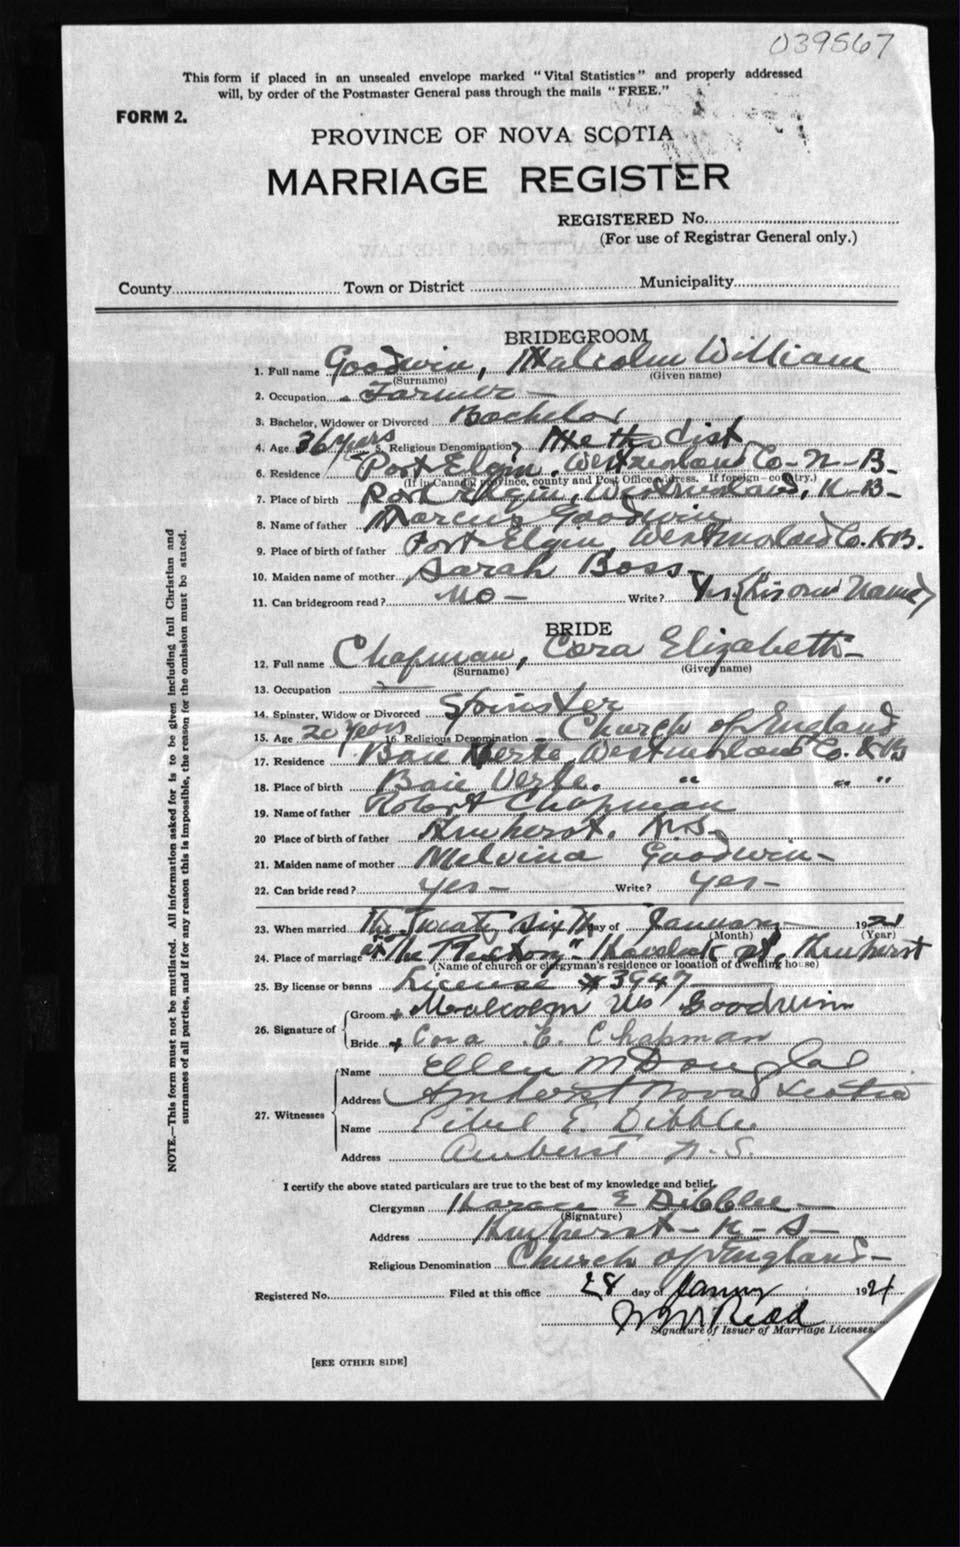 039567
This form if placed in an unsealed envelope marked "Vital Statistics" and properly addressed
will, by order of the Postmaster General pass through the mails "FREE."
FORM 2.
PROVINCE OF NOVA SCOTIA
MARRIAGE REGISTER
REGISTERED No.
(For use of Registrar General only.)
County Town or District Municipality
BRIDEGROOM
1. Full name Goodwin, Malcolm William
(Surname) (Given name)
2. Occupation Farmer -
3. Bachelor, Widower or Divorced Bachelor
4. Age 36 years 5. Religious Denomination Methodist
6. Residence Port Elgin. Westmorland Co - N - B -
(If in Canada province, county and Post Office address. If foreign—country.)
7. Place of birth Port Elgin, Westmorland, N - B -
8. Name of father Marcus Goodwin
9. Place of birth of father Port Elgin Westmorland Co. N.B.
10. Maiden name of mother Sarah Boss -
11. Can bridegroom read? No - Write? Yes. (his own name)
BRIDE
12. Full name Chapman, Cora Elizabeth -
(Surname) (Given name)
13. Occupation —
14. Spinster, Widow or Divorced Spinster
15. Age 20 years 16. Religious Denomination - Church of England
17. Residence Baie Verte Westmorland Co. N B
18. Place of birth Baie Verte. " " "
19. Name of father Robert Chapman
20 Place of birth of father Amherst. N.S.
21. Maiden name of mother Melvina Goodwin -
22. Can bride read? yes - Write? yes -
23. When married The Twenty Sixth day of January 1921
(Month) (Year)
24. Place of marriage at "The Rectory" - Havelock st, Amherst
(Name of church or clergyman's residence or location of dwelling house)
25. By license or banns License # 3947
26. Signature of Groom Malcolm Wm Goodwin
Bride Cora E. Chapman
27. Witnesses Name Ellen M Douglas
Address Amherst Nova Scotia
Name Ethel E. Dibblee
Address Amherst N.S.
I certify the above stated particulars are true to the best of my knowledge and belief.
Clergyman Horace E Dibblee -
(Signature)
Address Amherst - N - S -
Religious Denomination Church of England -
Registered No. Filed at this office 28 day of January 1921
Signature of Issuer of Marriage Licenses.
[SEE OTHER SIDE]
NOTE.—This form must not be mutilated. All information asked for is to be given including full Christian and
surnames of all parties, and if for any reason this is impossible, the reason for the omission must be stated.